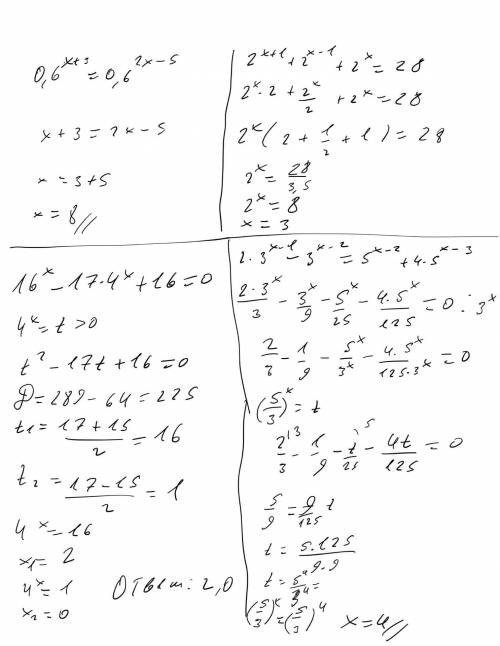 0,6^{x+3} = 0,6^{2x-5}
x + 3 = 2x - 5
x = 3+5
x = 8//
2^{x+1} + 2^{x-1} + 2^x = 28
2^x · 2 + \frac{2^x}{2} + 2^x = 28
2^x (2 + \frac{1}{2} + 1) = 28
2^x = \frac{28}{3,5}
2^x = 8
x = 3
16^x - 17·4^x + 16 = 0
4^x = t > 0
t^2 - 17t + 16 = 0
D = 289 - 64 = 225
t_1 = \frac{17+15}{2} = 16
t_2 = \frac{17-15}{2} = 1
4^x = 16
x_1 = 2
4^x = 1
x_2 = 0
Ответ: 2,0
2·3^{x-1} - 3^{x-2} = 5^{x-2} + 4·5^{x-3}
\frac{2·3^x}{3} - \frac{3^x}{9} - \frac{5^x}{25} - \frac{4·5^x}{125} = 0 : 3^x
\frac{2}{3} - \frac{1}{9} - \frac{5^x}{3^x} - \frac{4·5^x}{125·3^x} = 0
(\frac{5}{3})^x = t
\frac{2^{\3}}{3} - \frac{1}{9} - \frac{t^{\5}}{25} - \frac{4t}{125} = 0
\frac{5}{9} = \frac{9}{125} t
t = \frac{5·125}{9·9}
t = \frac{5^4}{3^4} =
(\frac{5}{3})^x = (\frac{5}{3})^4
x = 4//